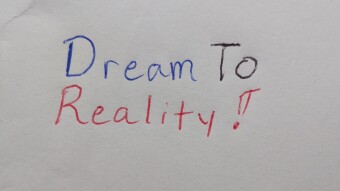 Dream To
Reality !!